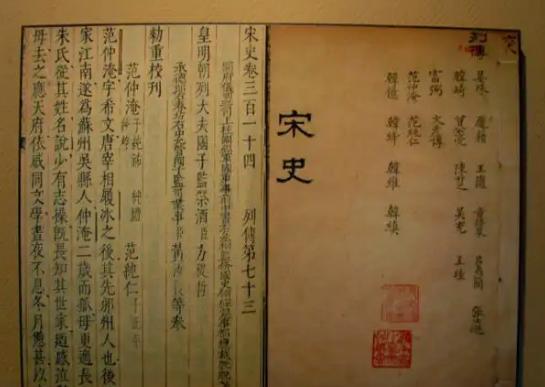 列傳
晏殊 龐籍 王隨 章得象 呂夷簡 張士遜
韓琦 曾公亮 陳升之 吳充 王珪
富弼 文彥博
范仲淹 范純仁
韓億 韓絳 韓維 韓縝
宋史
宋史卷三百一十四 列傳第七十三
皇明朝列大夫國子監祭酒臣方從哲
勅重校刊
范仲淹 子純祐 純禮 范純仁 子正平
范仲淹字希文唐宰相履冰之後其先邠州人也後
家江南遂為蘇州吳縣人仲淹二歲而孤母更適長
朱氏從其姓名說少有志操既長知其世家迺感泣
母去之應天府依戚同文學晝夜不息冬月憊甚以